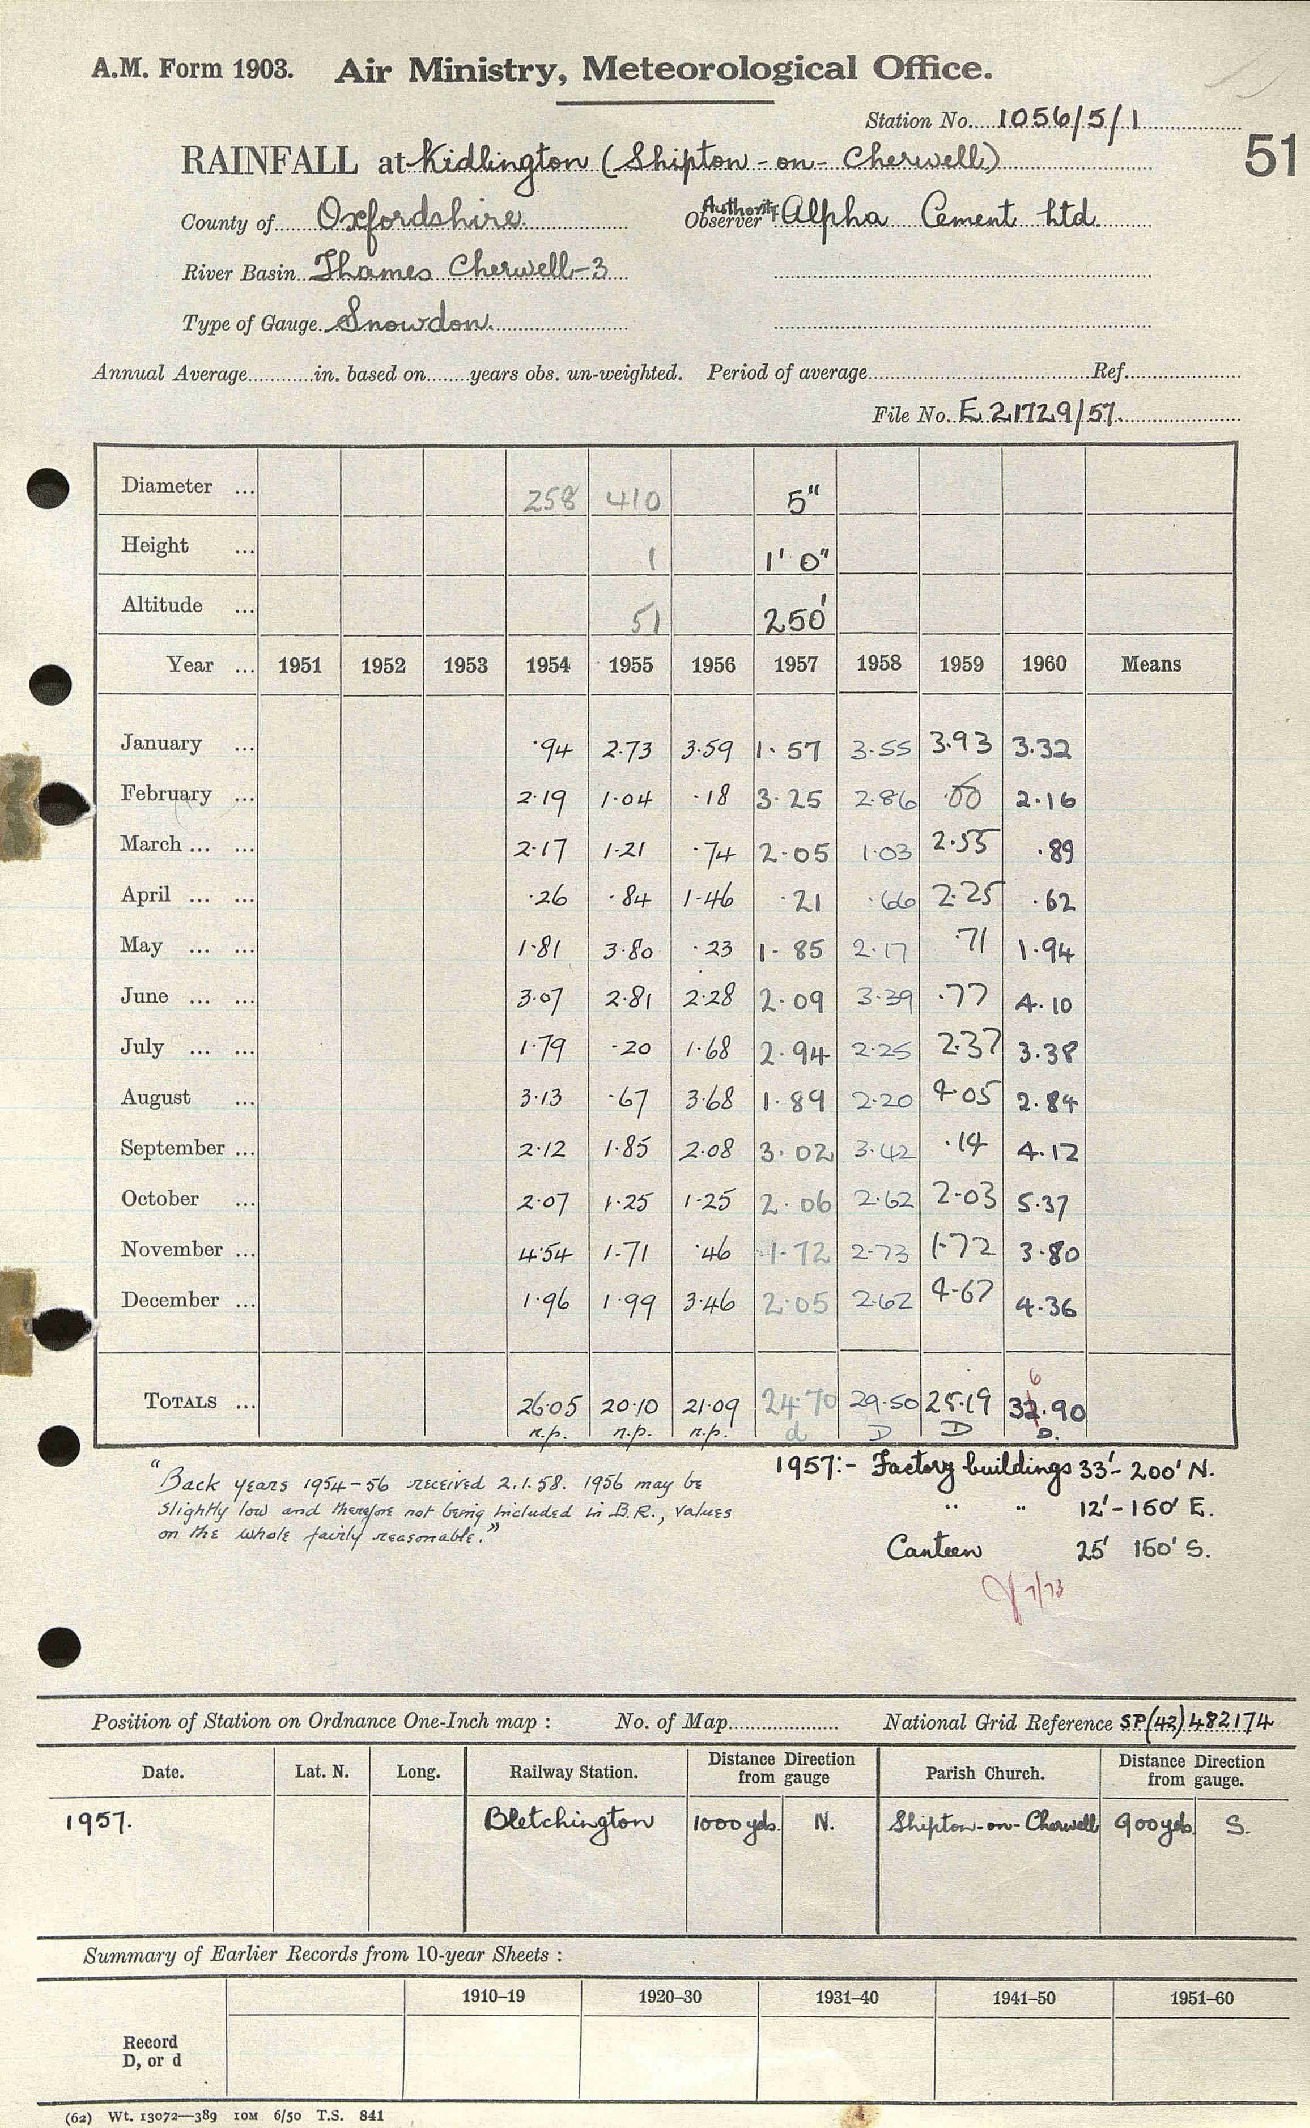 A.M. Form 1903. Air Ministry, Meteorological Office.
Station No. 1056/5/1
RAINFALL at Kidlington (Shipton-on-Cherwell)
51
County of Oxfordshire Authority Observer Alpha Cement Ltd.
River Basin Thames Cherwell-3
Type of Gauge Snowdon
Annual Average in. based on years obs. un-weighted. Period of average Ref.
File No. E 21729/57.
Diameter ... 258 410 5"
Height ... 1 1' 0"
Altitude ... 51 250'
Year ... 1951 1952 1953 1954 1955 1956 1957 1958 1959 1960 Means
January ... ·94 2·73 3·59 1·57 3·55 3·93 3·32
February ... 2·19 1·04 ·18 3·25 2·86 2·16
March ... ... 2·17 1·21 ·74 2·05 1·03 2·55 ·89
April ... ... ·26 ·84 1·46 ·21 ·66 2·25 ·62
May ... ... 1·81 3·80 ·23 1·85 2·17 ·71 1·94
June ... ... 3·07 2·81 2·28 2·09 3·39 ·77 4·10
July ... ... 1·79 ·20 1·68 2·94 2·25 2·37 3·38
August ... 3·13 ·67 3·68 1·89 2·20 4·05 2·84
September ... 2·12 1·85 2·08 3·02 3·42 ·14 4·12
October ... 2·07 1·25 1·25 2·06 2·62 2·03 5·37
November ... 4·54 1·71 ·46 1·72 2·73 1·72 3·80
December ... 1·96 1·99 3·46 2·05 2·62 4·67 4·36
6
TOTALS ... 26·05 20·10 21·09 24·70 29·50 25·19 32·90
n.p. n.p. n.p. d D D D.
1957:- Factory buildings 33'- 200' N.
" " 12'- 160' E.
Canteen 25' 150' S.
"Back years 1954-56 received 2.1.58. 1956 may be
slightly low and therefore not being included in B.R., values
on the whole fairly reasonable."
7/73
Position of Station on Ordnance One-Inch map : No. of Map National Grid Reference SP(42)482174
Date. Lat. N. Long. Railway Station. Distance Direction from gauge Parish Church. Distance Direction from gauge.
1957. Bletchington 1000 yds. N. Shipton-on-Cherwell 900 yds. S.
Summary of Earlier Records from 10-year Sheets :
1910–19 1920–30 1931–40 1941–50 1951–60
Record
D, or d
(62) Wt. 13072—389 10M 6/50 T.S. 841